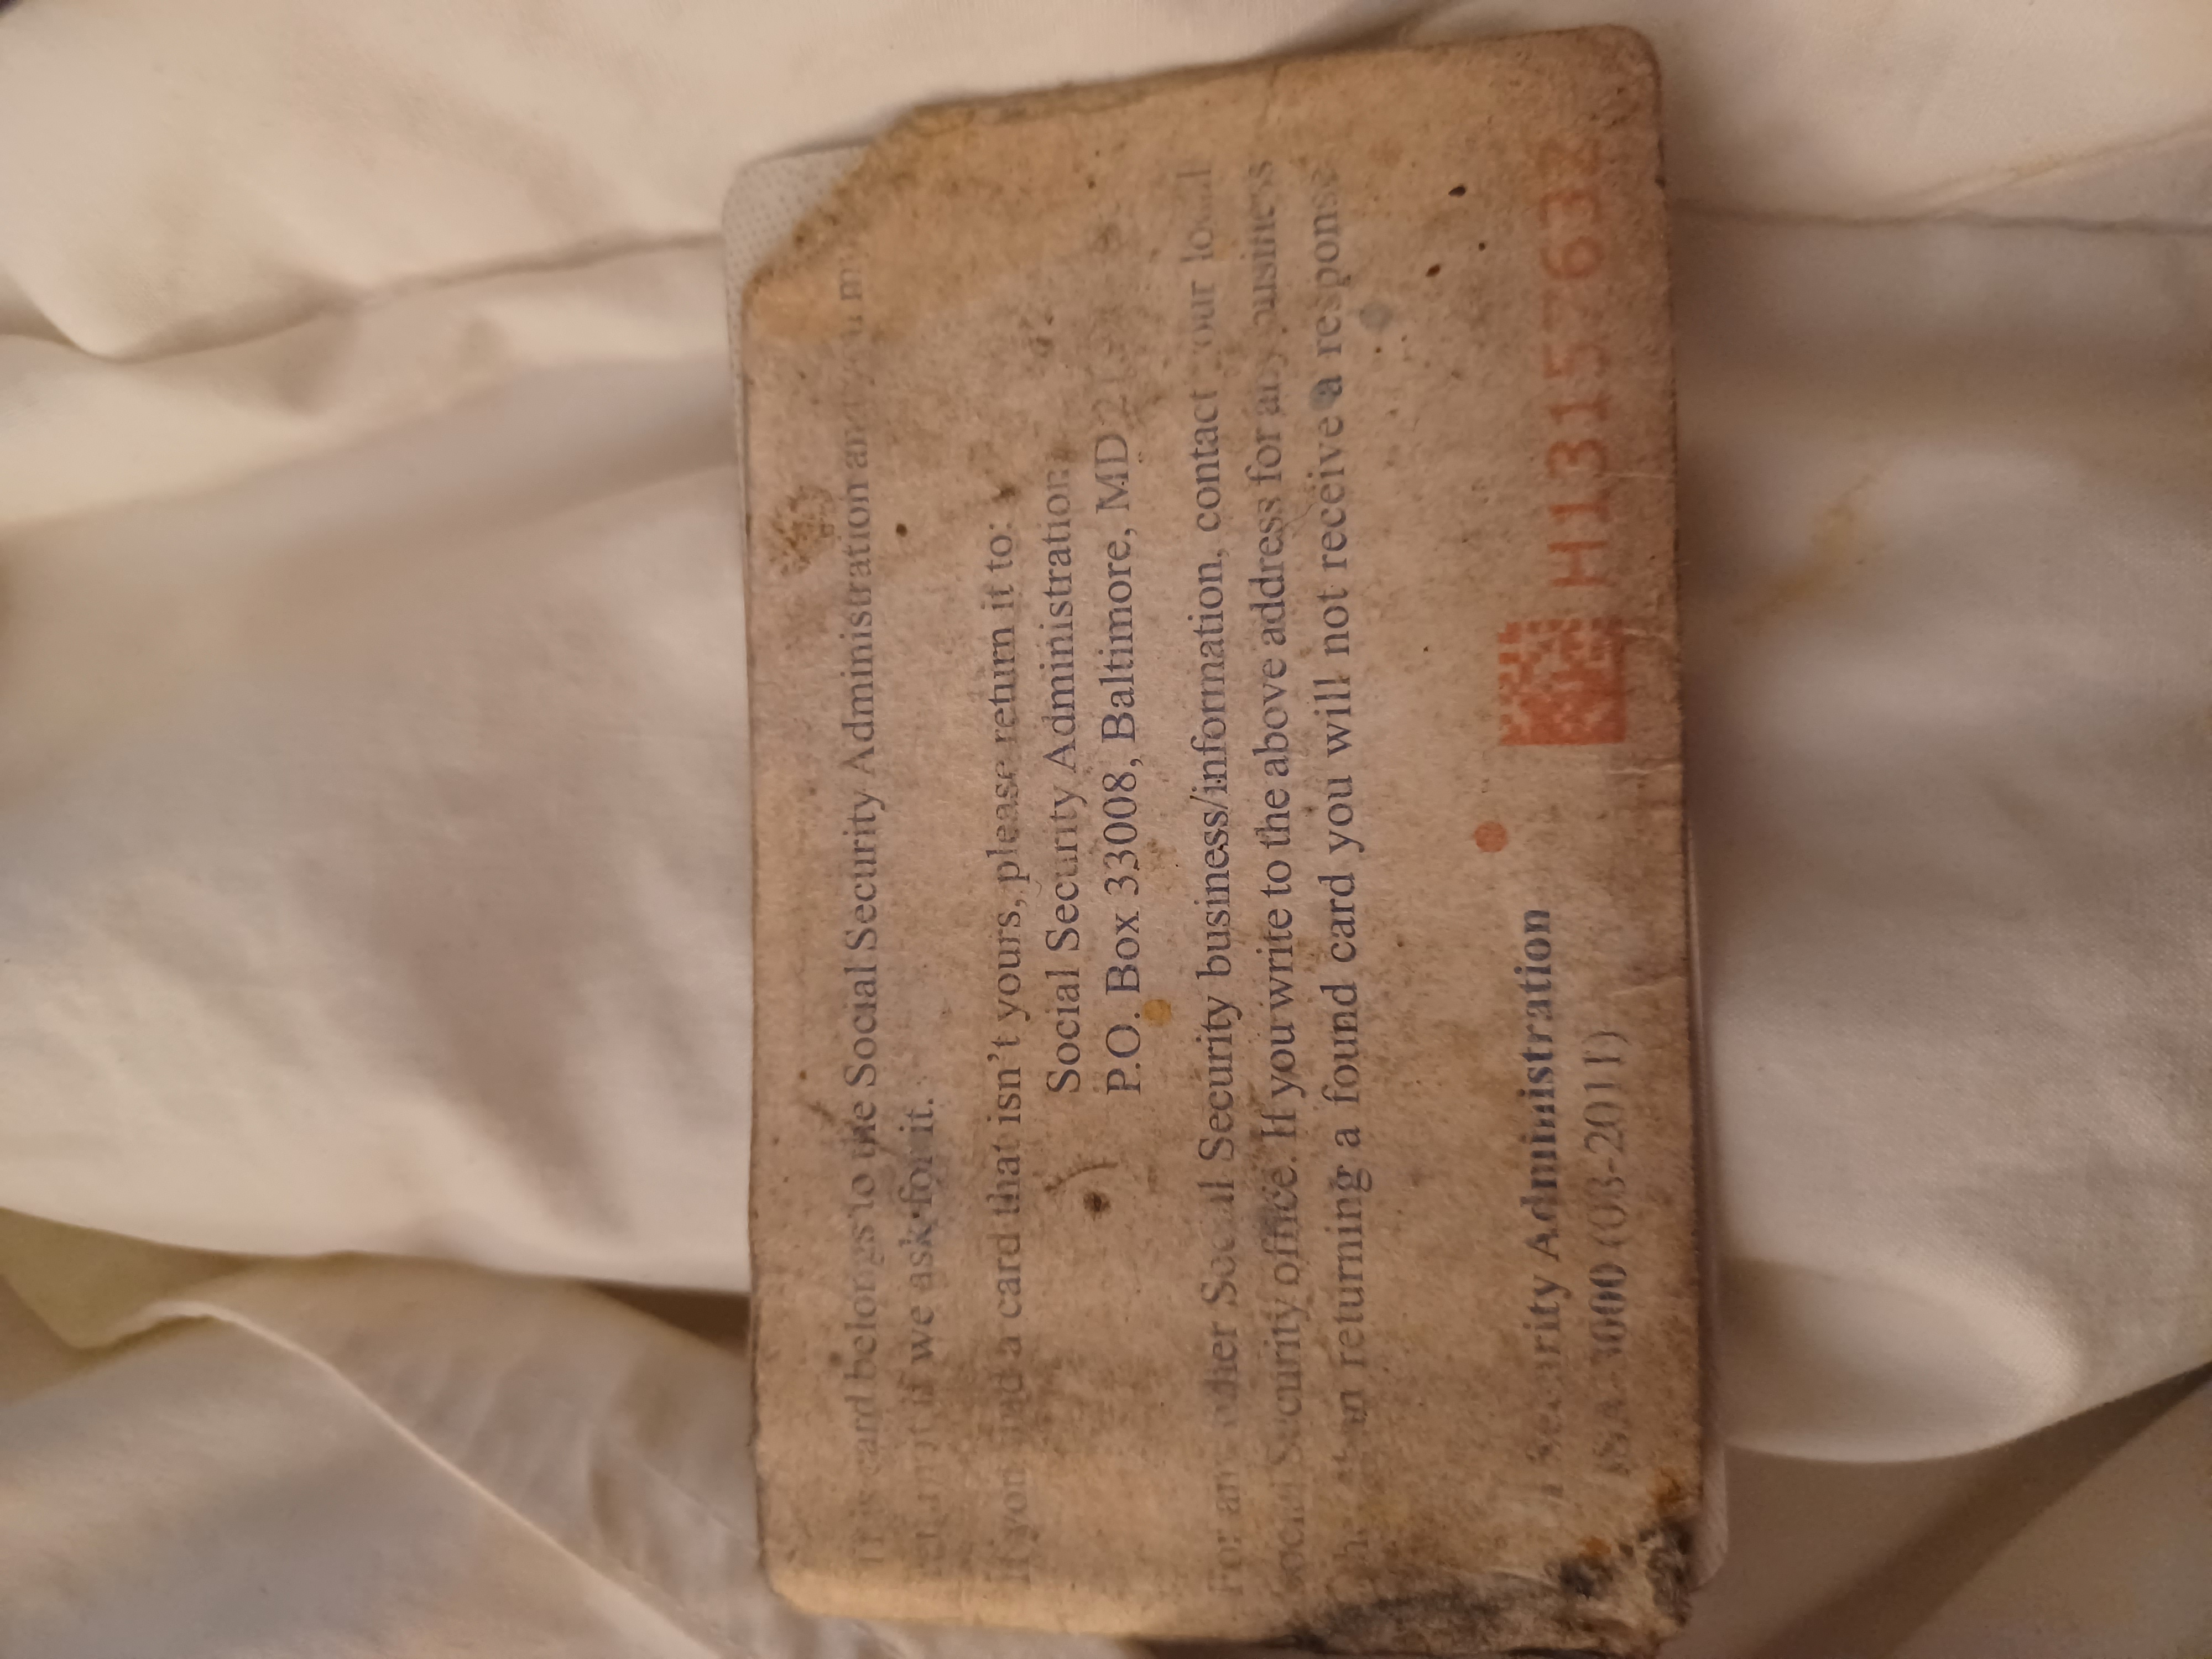 card belongs to the Social Security Administration and
if we ask for it.
If you find a card that isn't yours, please return it to:
Social Security Administration
P.O. Box 33008, Baltimore, MD
For any other Social Security business/information, contact your local
Social Security office. If you write to the above address for any business
than returning a found card you will not receive a response
Security Administration
(03-2011)
H13157632